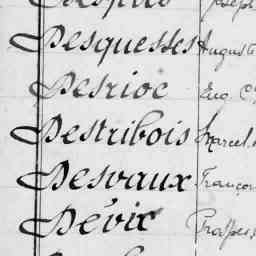 Desquesses Auguste
Desrioc Eug
Destribois Marcel
Desvaux François
Dévic Prosper